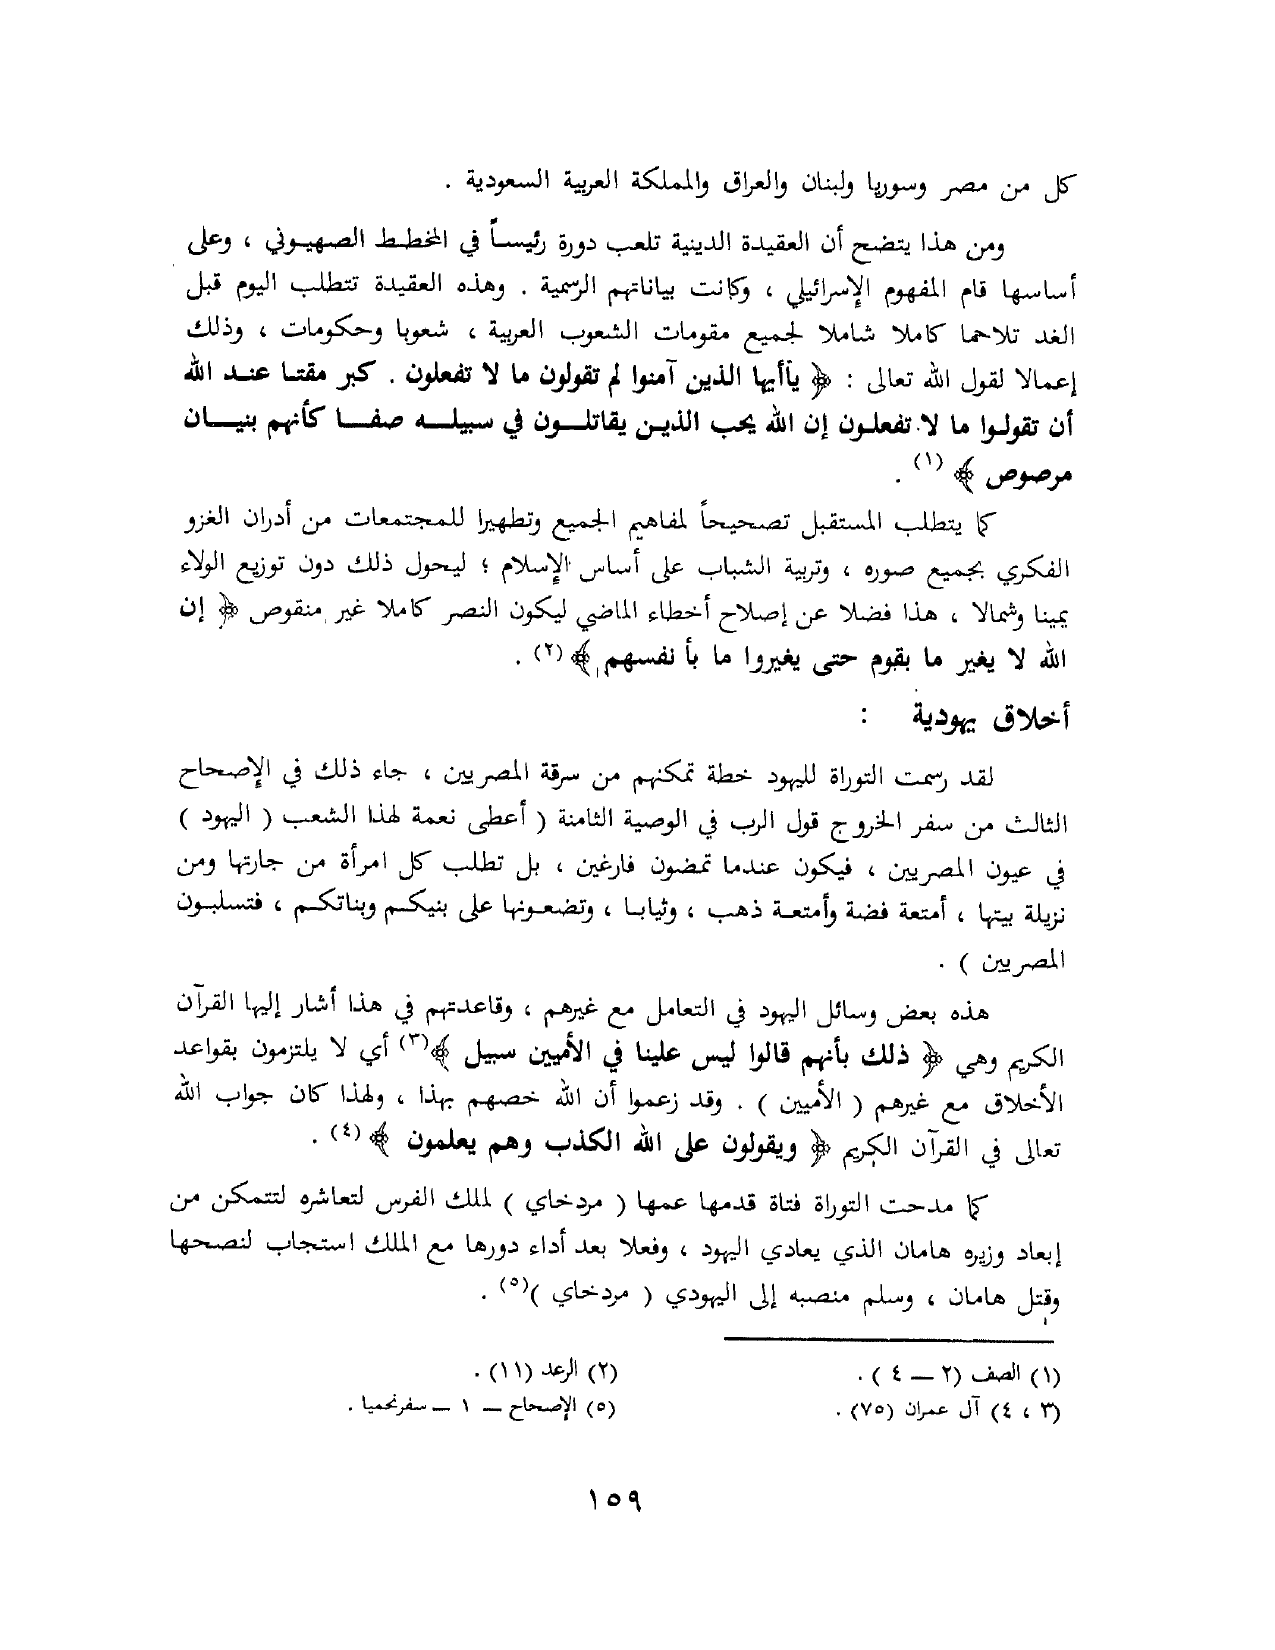 كل من مصر وسوريا ولبنان والعراق والمملكة العربية السعودية .
ومن هذا يتضح أن العقيدة الدينية تلعب دورة رئيساً في المخطط الصهيوني ، وعلى
أساسها قام المفهوم الإسرائيلي ، وكانت بياناتهم الرسمية . وهذه العقيدة تتطلب اليوم قبل
الغد تلاحما كاملا شاملا لجميع مقومات الشعوب العربية ، شعوبا وحكومات ، وذلك
إعمالا لقول الله تعالى : ﴿ يأأيها الذين آمنوا لم تقولون ما لا تفعلون . كبر مقتا عند الله
أن تقولوا ما لا تفعلون إن الله يحب الذين يقاتلون في سبيله صفا كأنهم بنيان
مرصوص ﴾ (١) .
كما يتطلب المستقبل تصحيحاً لمفاهيم الجميع وتطهيرا للمجتمعات من أدران الغزو
الفكري بجميع صوره ، وتربية الشباب على أساس الإسلام ؛ ليحول ذلك دون توزيع الولاء
يمينا وشمالا ، هذا فضلا عن إصلاح أخطاء الماضي ليكون النصر كاملا غير منقوص ﴿ إن
الله لا يغير ما بقوم حتى يغيروا ما بأنفسهم ﴾ (٢) .
أخلاق يهودية :
لقد رسمت التوراة لليهود خطة تمكنهم من سرقة المصريين ، جاء ذلك في الإصحاح
الثالث من سفر الخروج قول الرب في الوصية الثامنة ( أعطى نعمة لهذا الشعب ( اليهود )
في عيون المصريين ، فيكون عندما تمضون فارغين ، بل تطلب كل امرأة من جارتها ومن
نزيلة بيتها ، أمتعة فضة وأمتعة ذهب ، وثيابا ، وتضعونها على بنيكم وبناتكم ، فتسلبون
المصريين ) .
هذه بعض وسائل اليهود في التعامل مع غيرهم ، وقاعدتهم في هذا أشار إليها القرآن
الكريم وهي ﴿ ذلك بأنهم قالوا ليس علينا في الأميين سبيل ﴾(٣) أي لا يلتزمون بقواعد
الأخلاق مع غيرهم ( الأميين ) . وقد زعموا أن الله خصهم بهذا ، ولهذا كان جواب الله
تعالى في القرآن الكريم ﴿ ويقولون على الله الكذب وهم يعلمون ﴾ (٤) .
كما مدحت التوراة فتاة قدمها عمها ( مردخاي ) لملك الفرس لتعاشره لتتمكن من
إبعاد وزيره هامان الذي يعادي اليهود ، وفعلا بعد أداء دورها مع الملك استجاب لنصحها
وقتل هامان ، وسلم منصبه إلى اليهودي ( مردخاي )(٥) .
(١) الصف (٢ — ٤ ) .
(٢) الرعد (١١) .
(٣ ، ٤) آل عمران (٧٥) .
(٥) الإصحاح — ١ — سفرنحميا .
١٥٩